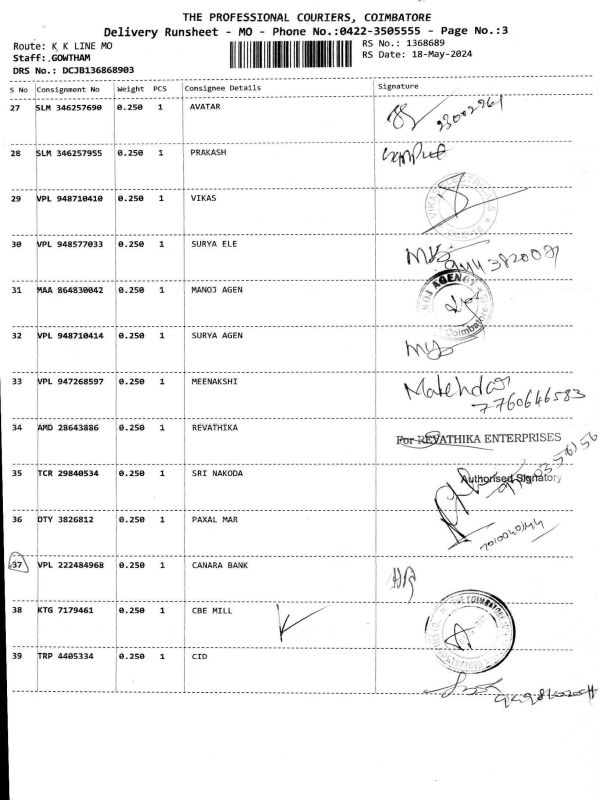 THE PROFESSIONAL COURIERS, COIMBATORE
Delivery Runsheet - MO - Phone No.:0422-3505555 - Page No.:3
Route: K K LINE MO
RS No.: 1368689
Staff: GOWTHAM
RS Date: 18-May-2024
DRS No.: DCJB136868903
S No Consignment No Weight PCS Consignee Details Signature
27 SLM 346257690 0.250 1 AVATAR
28 SLM 346257955 0.250 1 PRAKASH
29 VPL 948710410 0.250 1 VIKAS
30 VPL 948577033 0.250 1 SURYA ELE
31 MAA 864830042 0.250 1 MANOJ AGEN
NOJ AGENCY
Coimbatore
32 VPL 948710414 0.250 1 SURYA AGEN
33 VPL 947268597 0.250 1 MEENAKSHI
7760646583
34 AMD 28643886 0.250 1 REVATHIKA
For REVATHIKA ENTERPRISES
35 TCR 29840534 0.250 1 SRI NAKODA
Authorised Signatory
36 OTY 3826812 0.250 1 PAXAL MAR
37 VPL 222484968 0.250 1 CANARA BANK
38 KTG 7179461 0.250 1 CBE MILL
39 TRP 4405334 0.250 1 CID